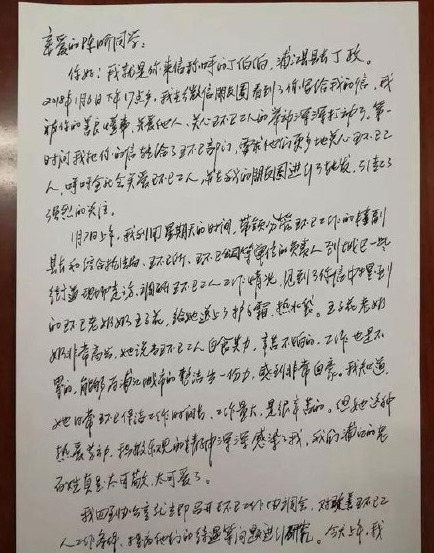 亲爱的陈昕同学:
你好!我就是你来信称呼的丁伯伯,浦江县长丁政。
2018年1月6日下午17点多,我在微信朋友圈看到了你写给我的信,我
被你的善良懂事、关爱他人、关心环卫工人的举动深深打动了。第一
时间我把你的信转给了环卫部门,要求他们更多地关心环卫工
人,呼吁全社会关爱环卫工人,并在我的朋友圈进行了转发,引起了
强烈的关注。
1月7日上午,我利用星期天的时间,带领分管环卫工作的
县长和综合执法局、环卫所、环卫公司等单位的负责人到城区一些
街道现场走访、调研环卫工人工作情况,见到了你信中提到
的环卫老奶奶王子花,给她送上了护手霜、热水袋。王子花老奶
奶非常高兴,她说当环卫工人自食其力,辛苦不怕的,工作也是不
累的,能够为浦江城市的整洁出一份力,感到非常自豪。我知道,
她日常环卫保洁工作时间长、工作量大,是很辛苦的。但她这种
热爱劳动、积极乐观的精神深深感染了我,我们浦江的老
百姓真是太可敬、太可爱了。
我回到办公室就立即召开环卫工作协调会,对改善环卫工
人工作条件、提高他们的待遇等问题进行研究。今天上午,我